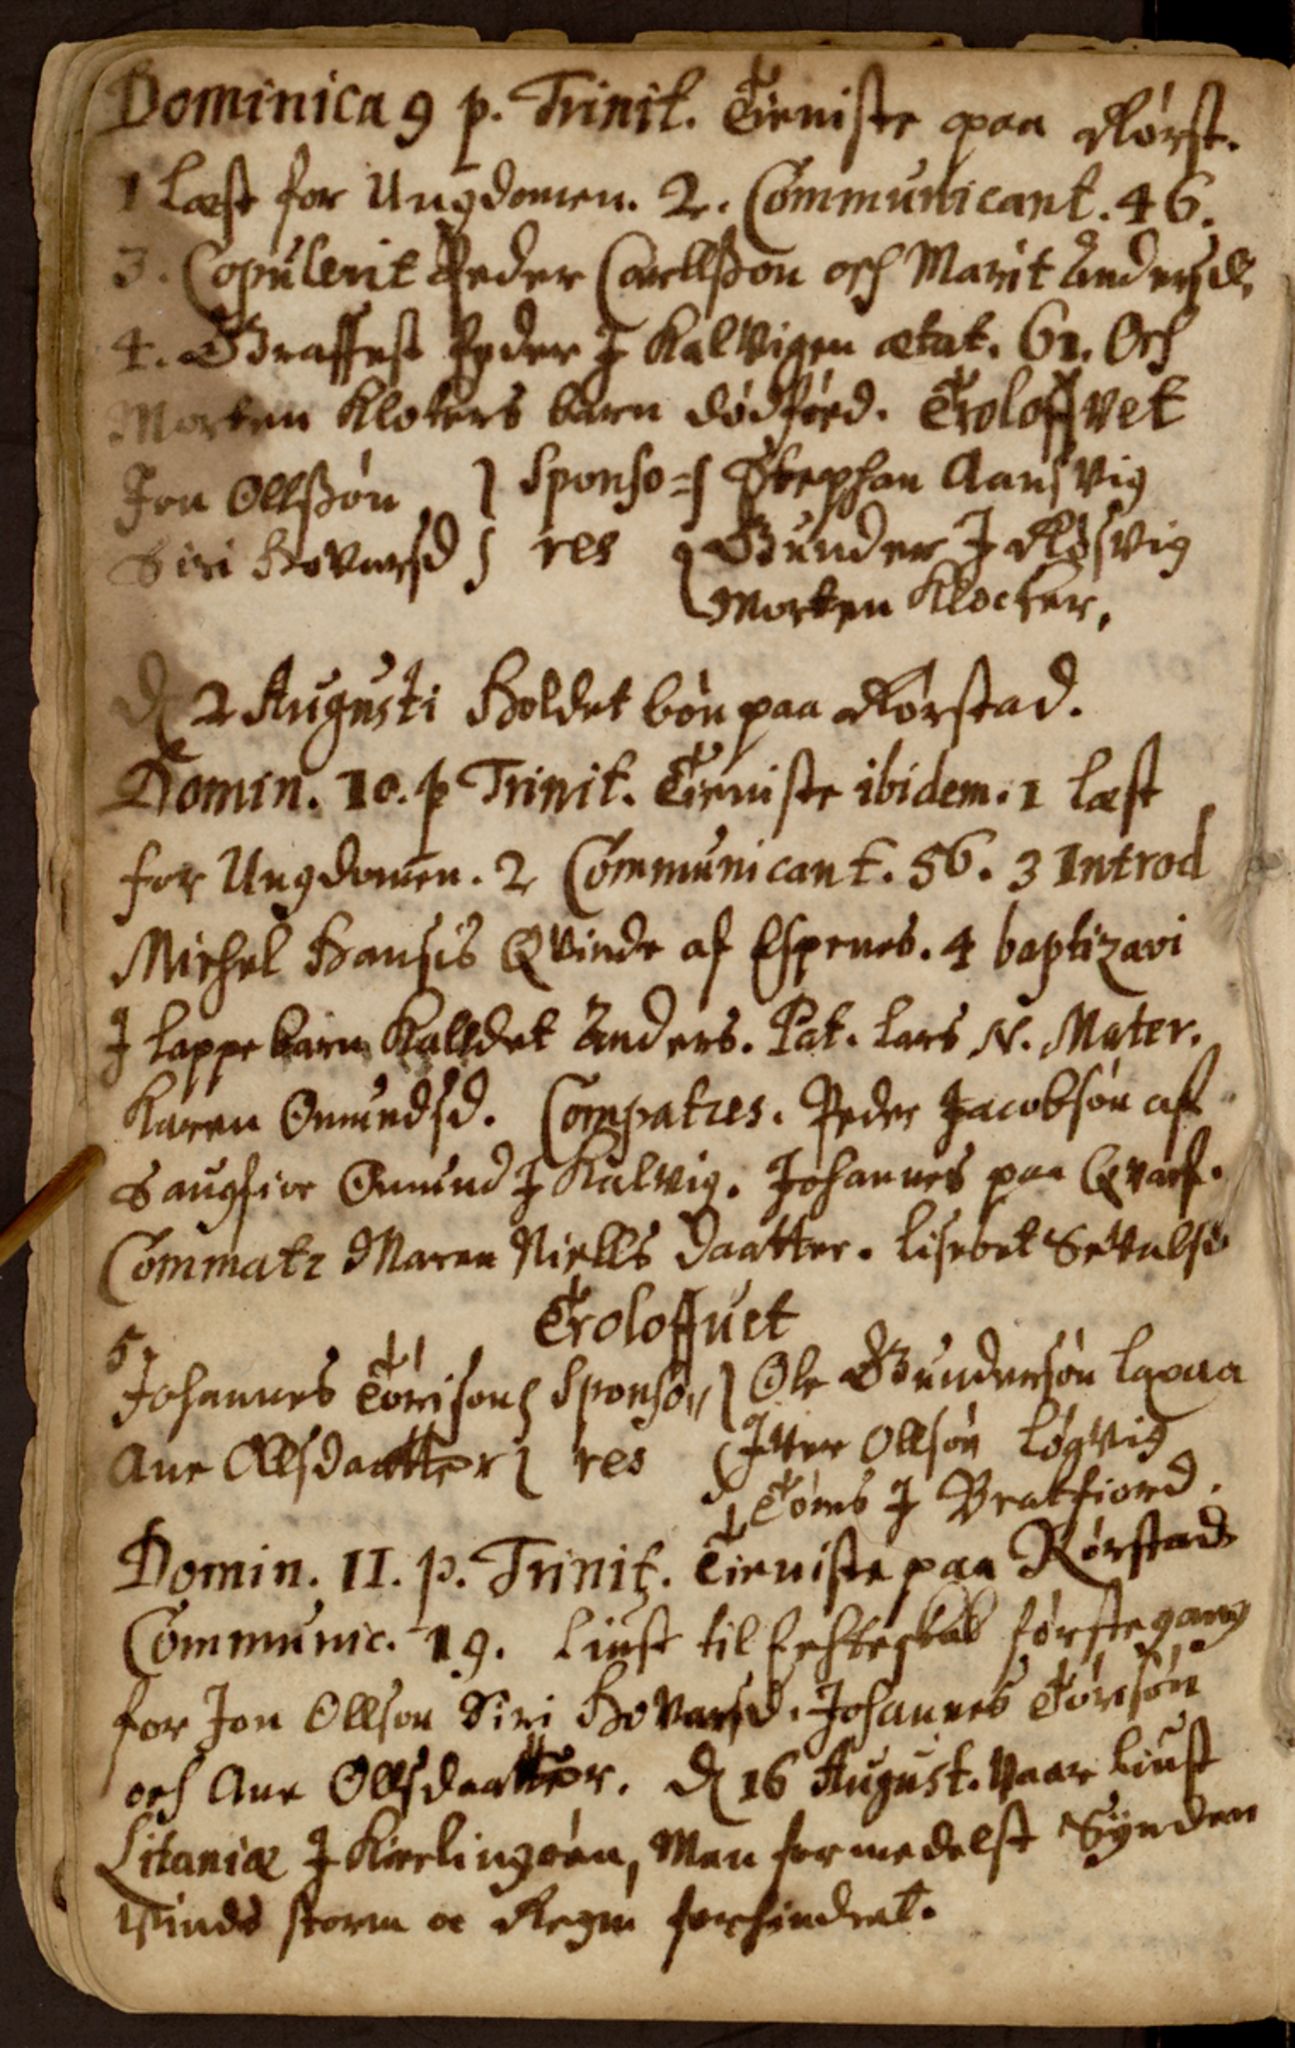 Dominica 9 p. Trinit. Tieniste paa Rørst.
1 Læst for Ungdomen. 2. Communicant. 46.
3. Copulerit Peder Carllsson och Marit Andersd.
4. Graffest Peder J Kalvigen ætat. 61. Och
Morten Klokers barn dødførd. Troloffvet
Jon Ollssøn } Sponso= { Stephan Aansvig
Siri Hovarsd } res { Gunder J Røsvig
Morten Klocker,
D 2 Augusti Holdet bøn paa Rørstad.
Domin. 10. p Trinit. Tieniste ibidem. 1 Læst
for Ungdomen. 2 Communicant. 56. 3 Introd
Michel Hansis Qvinde af Espenes. 4 baptizavi
J lappe barn Kalldet Anders. Pat. Lars N. Mater.
Karen Omundsd. Compatres. Peder Jacobsøn aff
Saugfior Omund J Kalvig. Johannes paa Qvarf.
Commatr Maren Niells daatter. Lisebet Sevalsd
Troloffuet
5.
Johannes Tørisøn } Sponso,, } Ole Gundersøn Lapaa
Ane Ollsdaatter } res { Iver Ollsøn Løgvig
Tøms J Bratfiord.
Domin. 11. p. Trinit. Tieniste paa Rørstad
Communic. 19. Liust til Echteskab første gang
for Jon Ollson Siri Hovarsd. Johannes Tørisøn
och Ane Ollsdaatter. D 16 August. Vaar liust
Litaniæ J Kierlingøen, Men formedelst Synden
Vinds storm oc Regn forhindret.